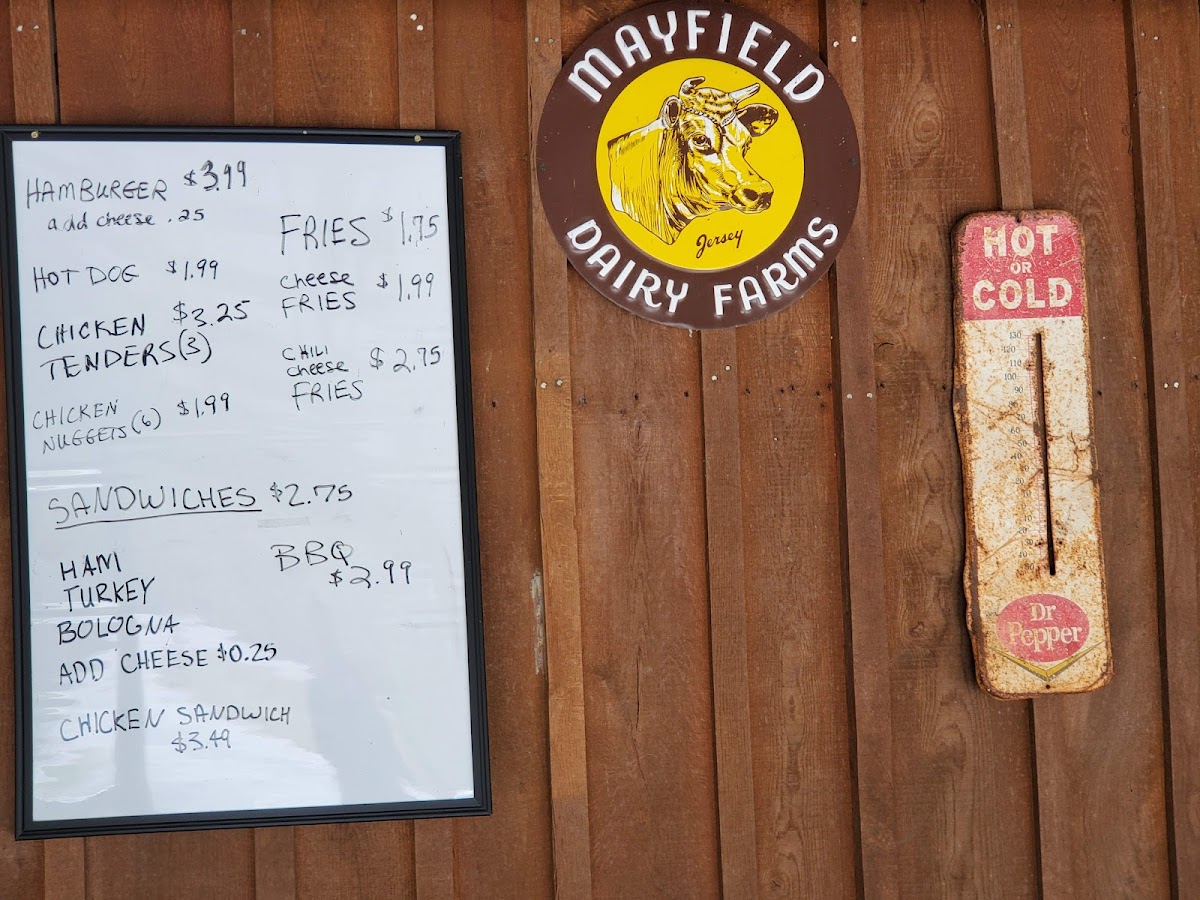 HAMBURGER $3.99
add cheese .25
HOT DOG $1.99
CHICKEN $3.25
TENDERS (3)
CHICKEN $1.99
NUGGETS (6)
FRIES $1.75
cheese $1.99
FRIES
CHILI
cheese $2.75
FRIES
SANDWICHES $2.75
HAM
TURKEY
BOLOGNA
ADD CHEESE $0.25
BBQ
$2.99
CHICKEN SANDWICH
$3.49
MAYFIELD
Jersey
DAIRY FARMS
HOT
OR
COLD
130
120
110
100
90
Dr
Pepper